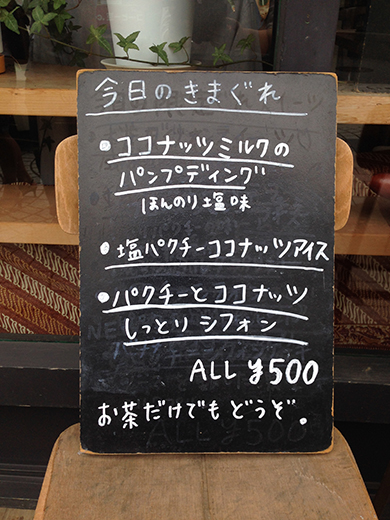 今日のきまぐれ
・ココナッツミルクの
パンプディング
ほんのり塩味
・塩パクチーココナッツアイス
・パクチーとココナッツ
しっとりシフォン
ALL ¥500
お茶だけでもどうぞ.